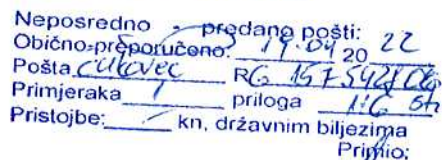 Neposredno - predano pošti:
Obično-preporučeno: 19.04 20 22
Pošta RG
Primjeraka 1 priloga
Pristojbe: kn, državnim biljezima
Primio: